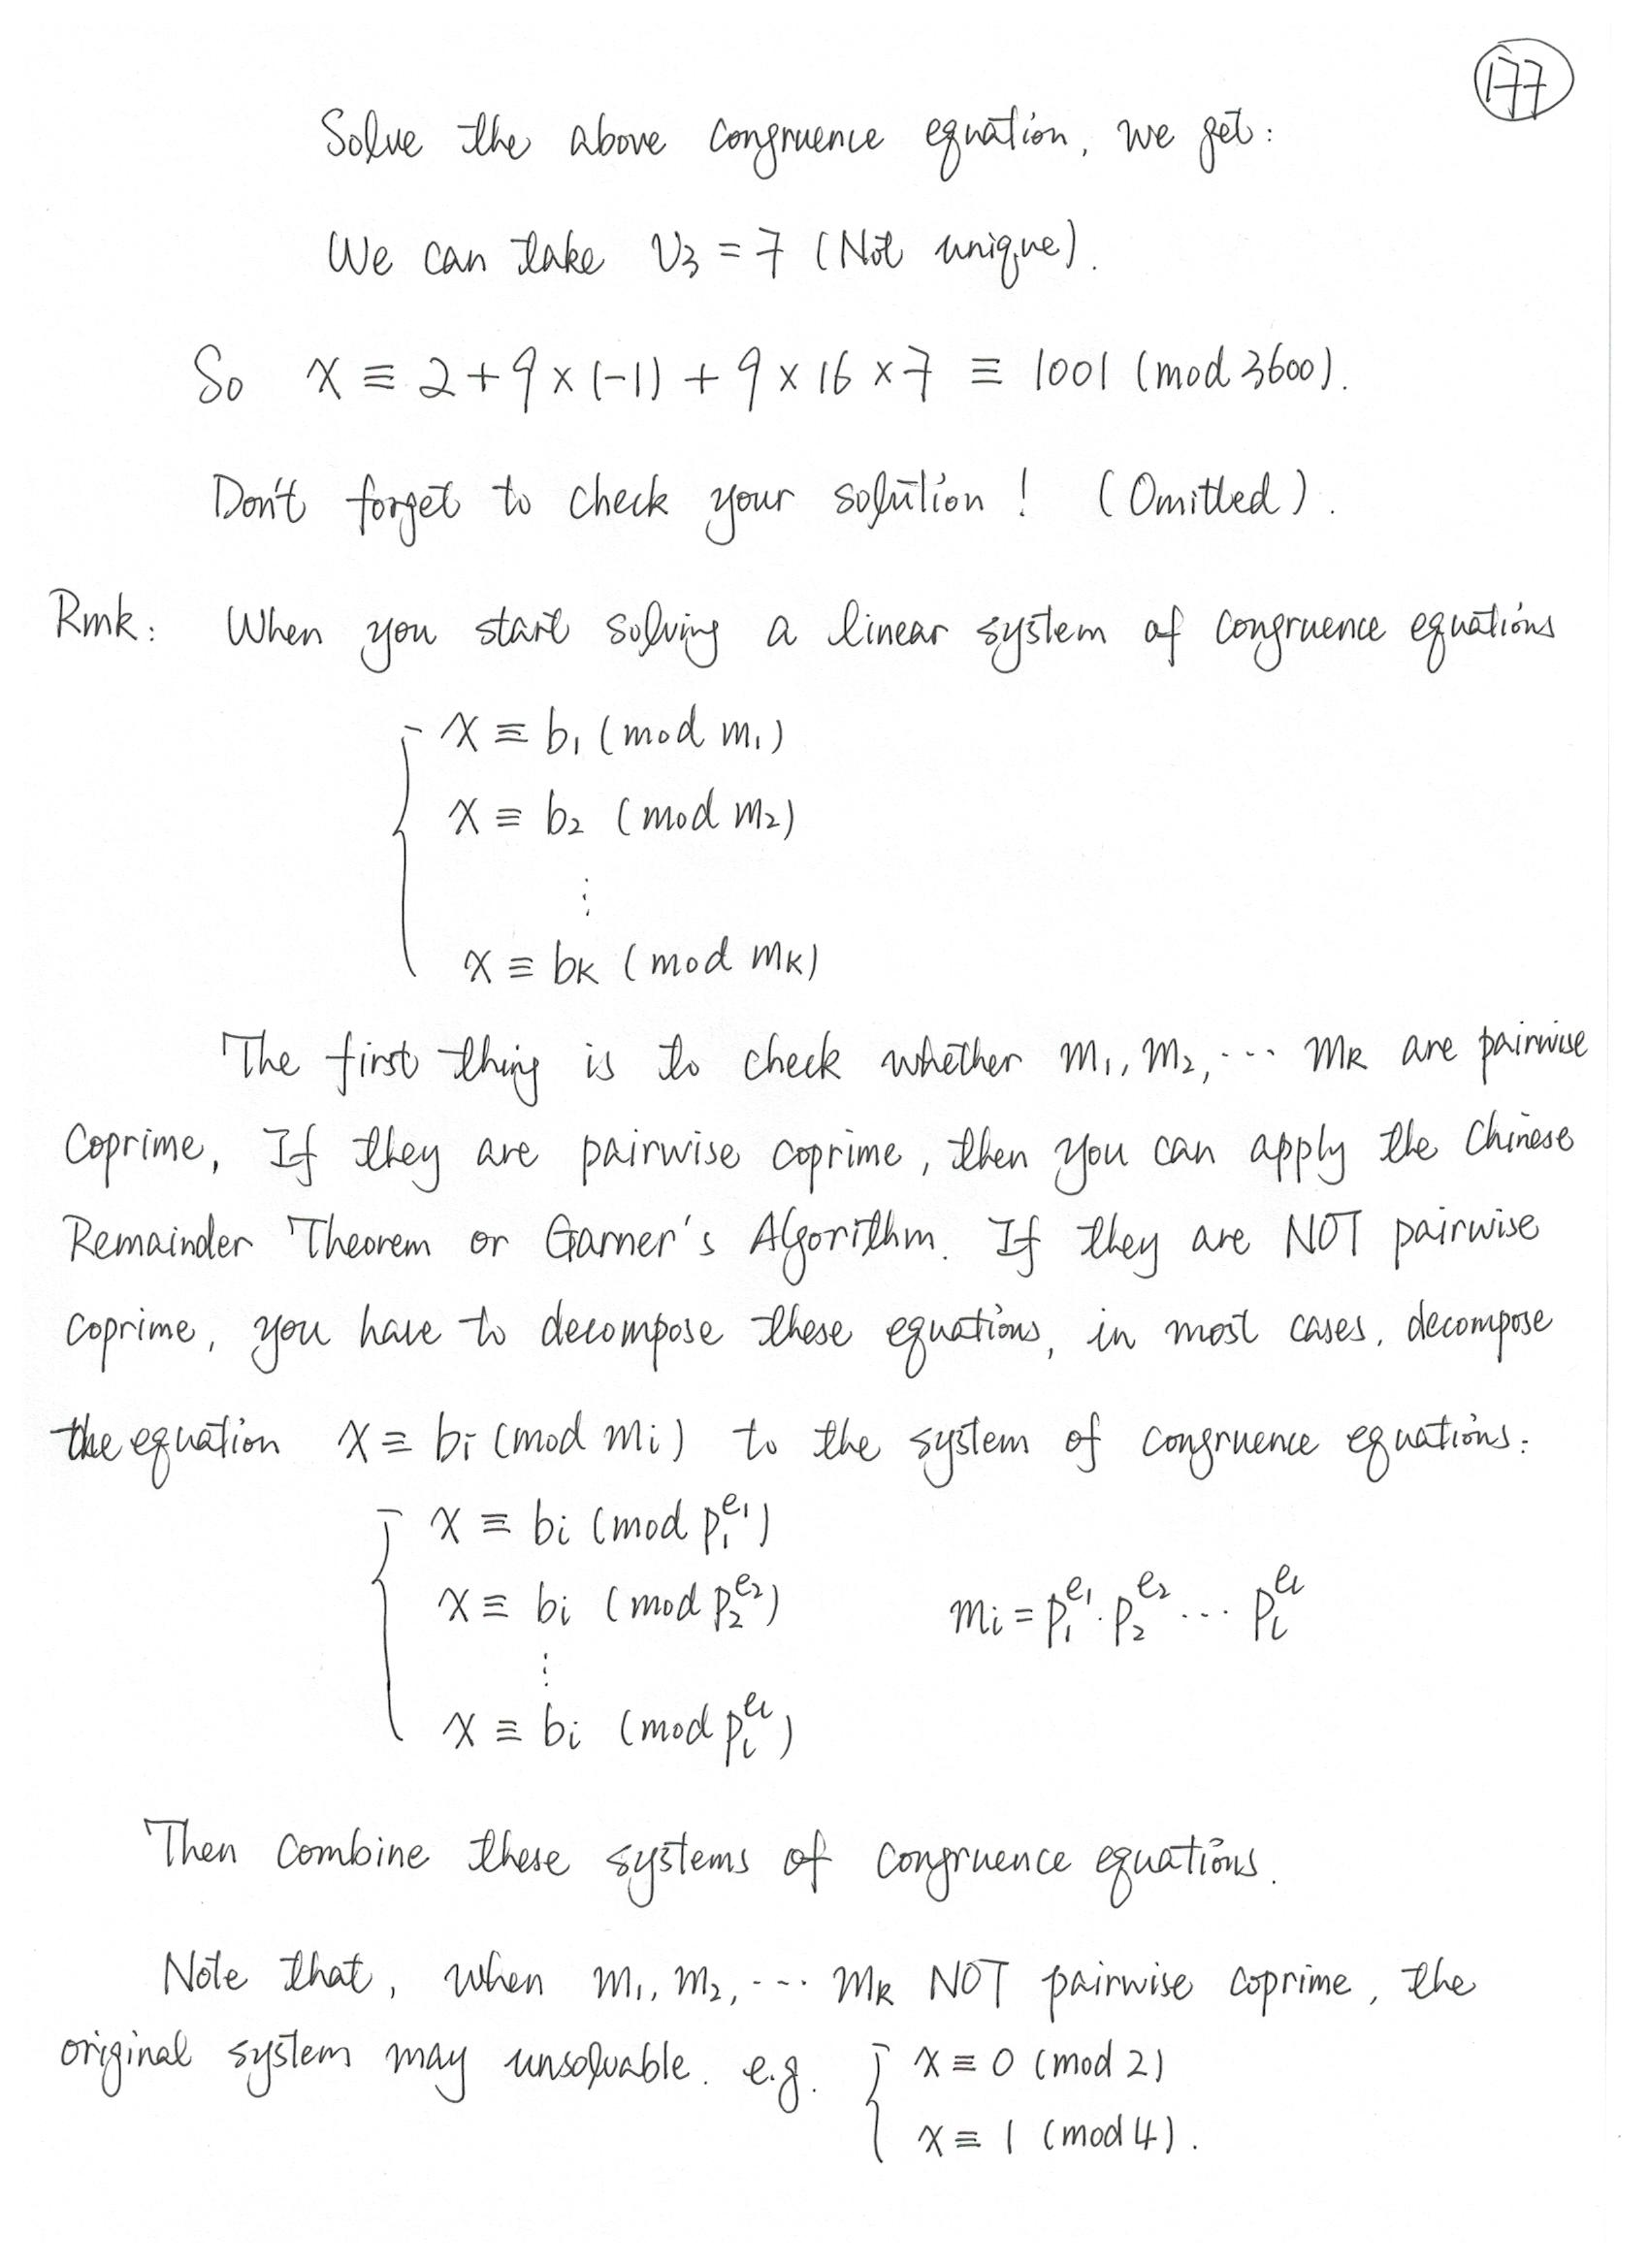 177
Solve the above congruence equation, we get:
We can take v₃ = 7 (Not unique).
So x ≡ 2 + 9 × (-1) + 9 × 16 × 7 ≡ 1001 (mod 3600).
Don't forget to check your solution! (Omitted).
Rmk: When you start solving a linear system of congruence equations
x ≡ b₁ (mod m₁)
x ≡ b₂ (mod m₂)
⋮
x ≡ bₖ (mod mₖ)
The first thing is to check whether m₁, m₂, ⋯ mₖ are pairwise
coprime, If they are pairwise coprime, then you can apply the Chinese
Remainder Theorem or Garner's Algorithm. If they are NOT pairwise
coprime, you have to decompose these equations, in most cases, decompose
the equation x ≡ bᵢ (mod mᵢ) to the system of congruence equations:
x ≡ bᵢ (mod p₁^e₁)
x ≡ bᵢ (mod p₂^e₂) mᵢ = p₁^e₁ · p₂^e₂ ⋯ pₗ^eₗ
⋮
x ≡ bᵢ (mod pₗ^eₗ)
Then combine these systems of congruence equations.
Note that, when m₁, m₂, ⋯ mₖ NOT pairwise coprime, the
original system may unsolvable. e.g. x ≡ 0 (mod 2)
x ≡ 1 (mod 4).